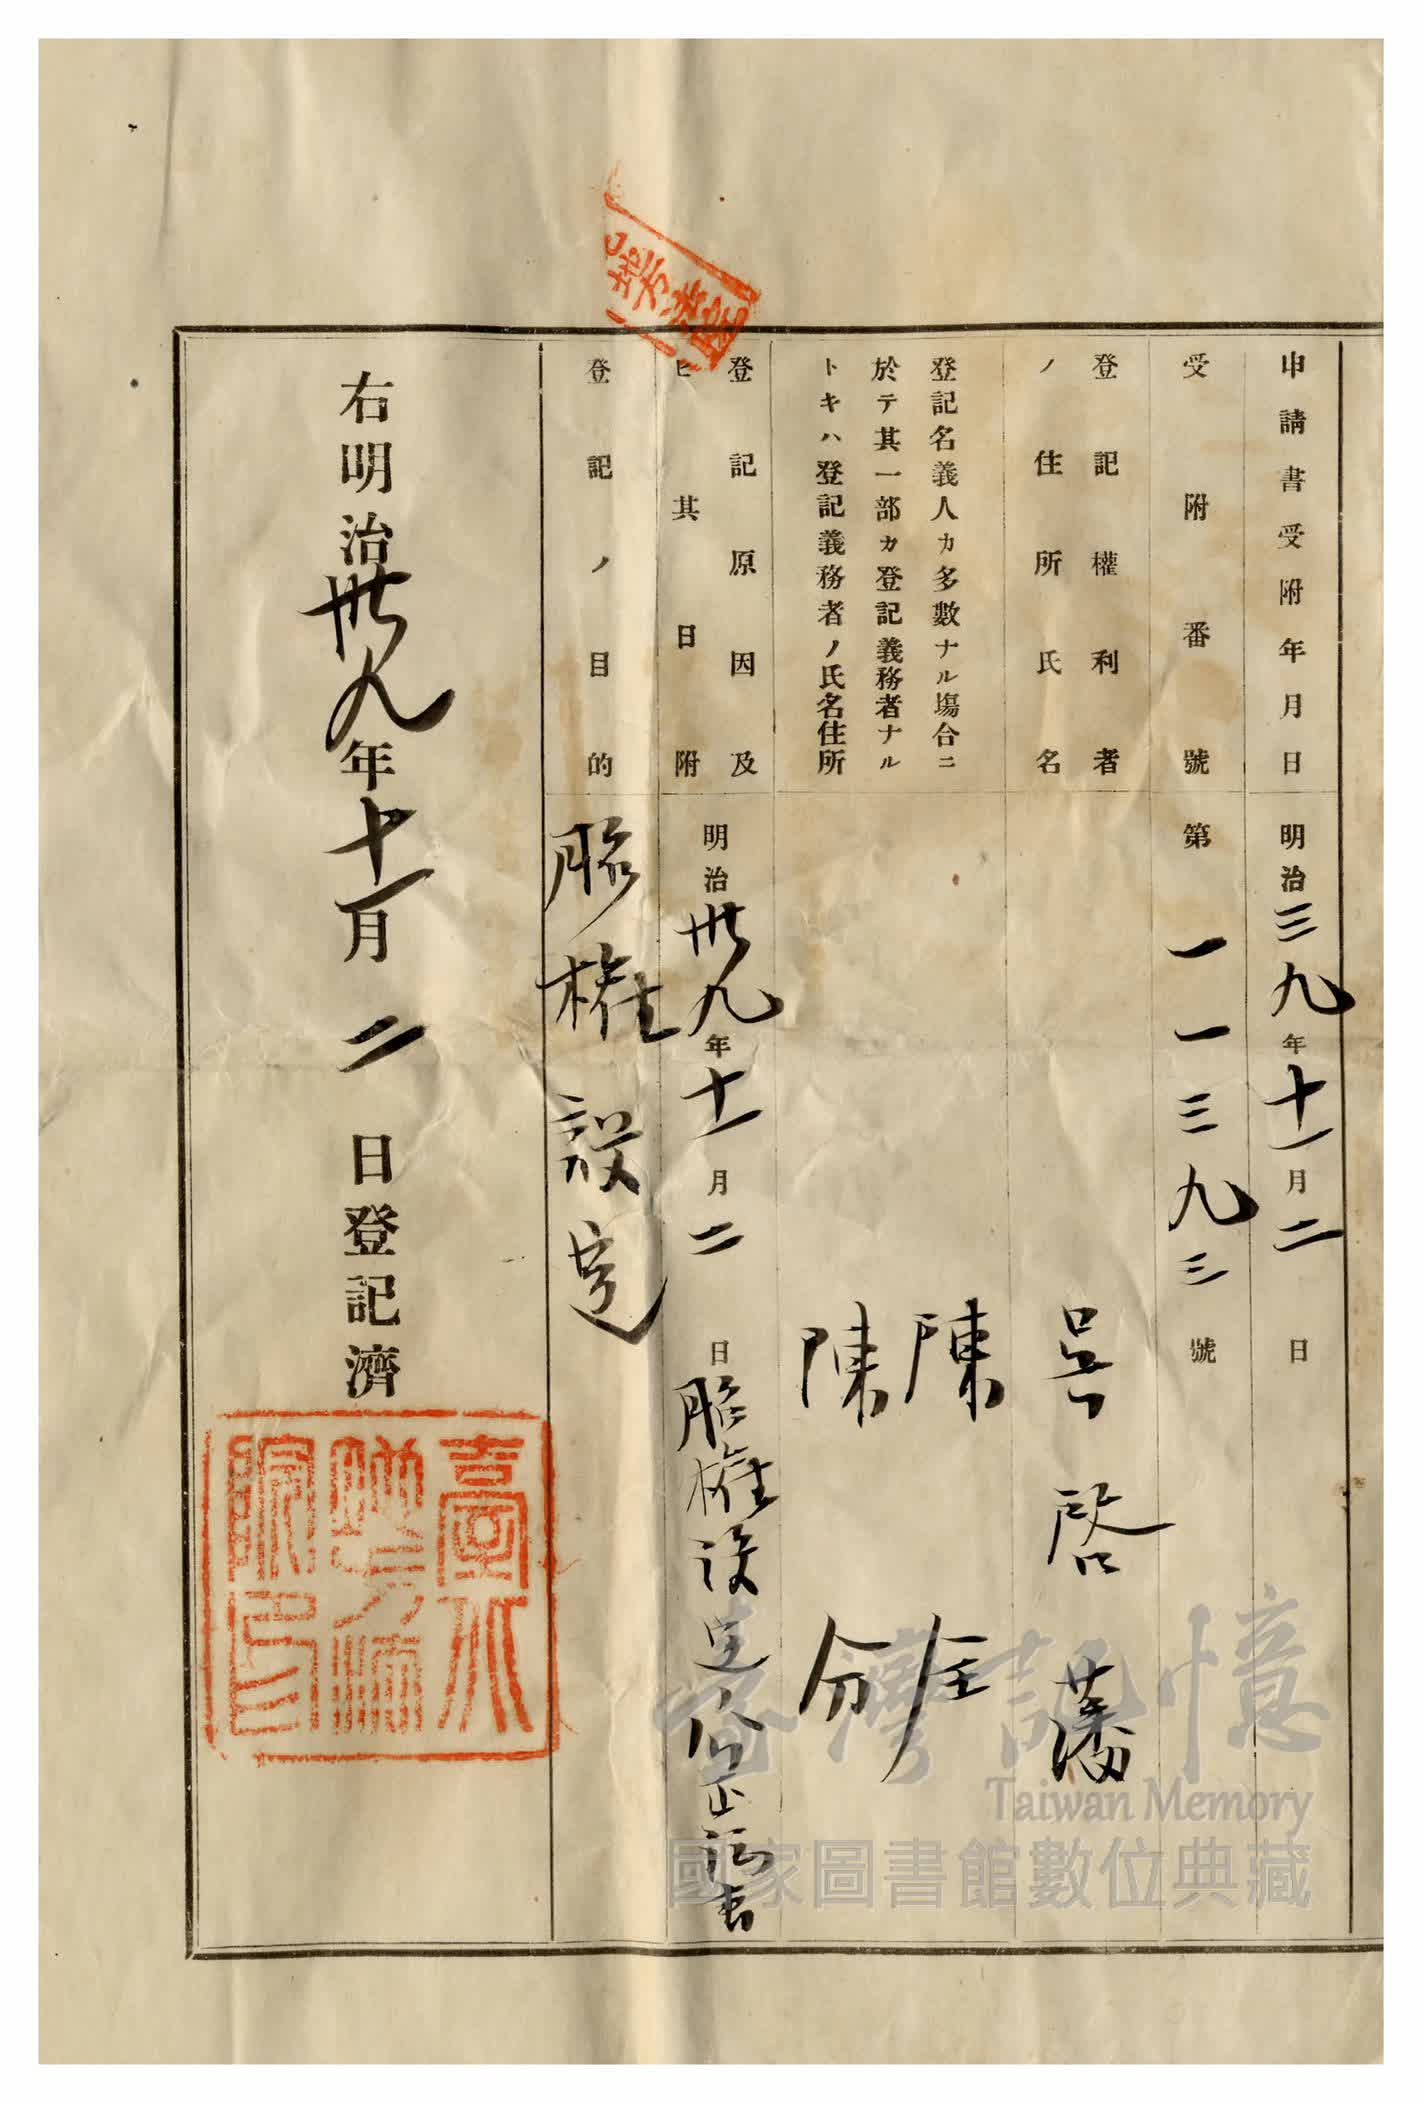 申請書受附年月日
明治三九年十一月二日
受附番號
第一一三九三號
登記權利者
ノ住所氏名
吳啓藩
登記名義人カ多數ナル塲合ニ
於テ其一部カ登記義務者ナル
トキハ登記義務者ノ氏名住所
陳全
陳分
登記原因及
ヒ其日附
明治卅九年十一月二日
胎權設定
登記ノ目的
胎權設定
右明治卅九年十一月二日登記濟
臺北
地方法
院印
臺灣記憶
Taiwan Memory
國家圖書館數位典藏